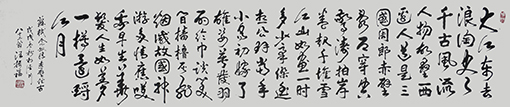 大江东去
浪淘尽
千古风流
人物故垒西
边人道是三
國周郎赤壁
乱石穿空
驚濤拍岸
卷起千堆雪
江山如画一时
多少豪傑遥
想公瑾当年
小乔初嫁了
雄姿英发羽
扇纶巾谈笑
间樯橹灰飞
烟灭故國神
游多情应笑
我早生华
发人生如梦
一樽還酹
江月
苏轼念奴娇赤壁怀古